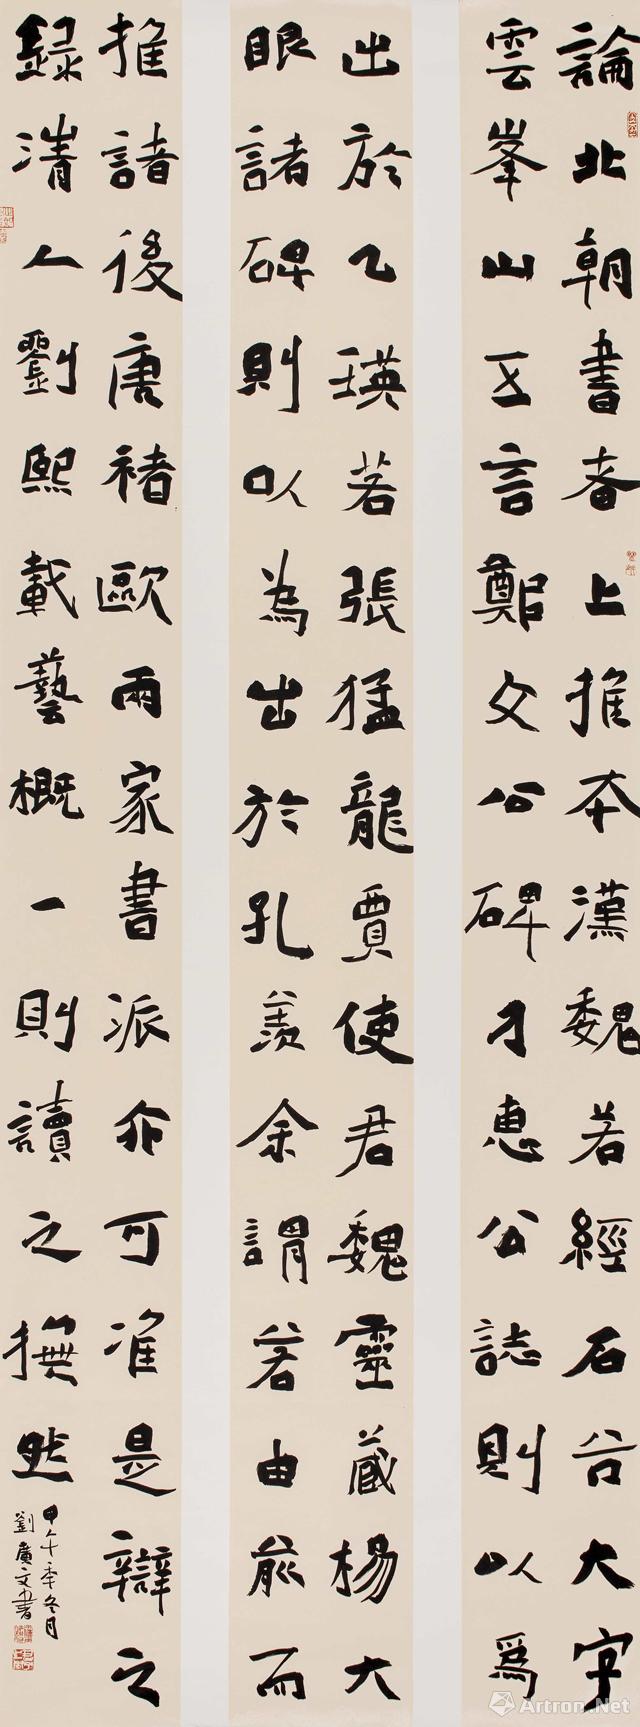 論北朝書者上推本漢魏若經石谷大字
雲峯山五言鄭文公碑刁惠公誌則以爲
出於乙瑛若張猛龍賈使君魏靈藏楊大
眼諸碑則以為出於孔羨余謂若由前而
推諸後唐褚歐兩家書派亦可準是辯之
錄清人劉熙載藝概一則讀之撫然
甲午年冬月
劉廣文書
Artron.Net